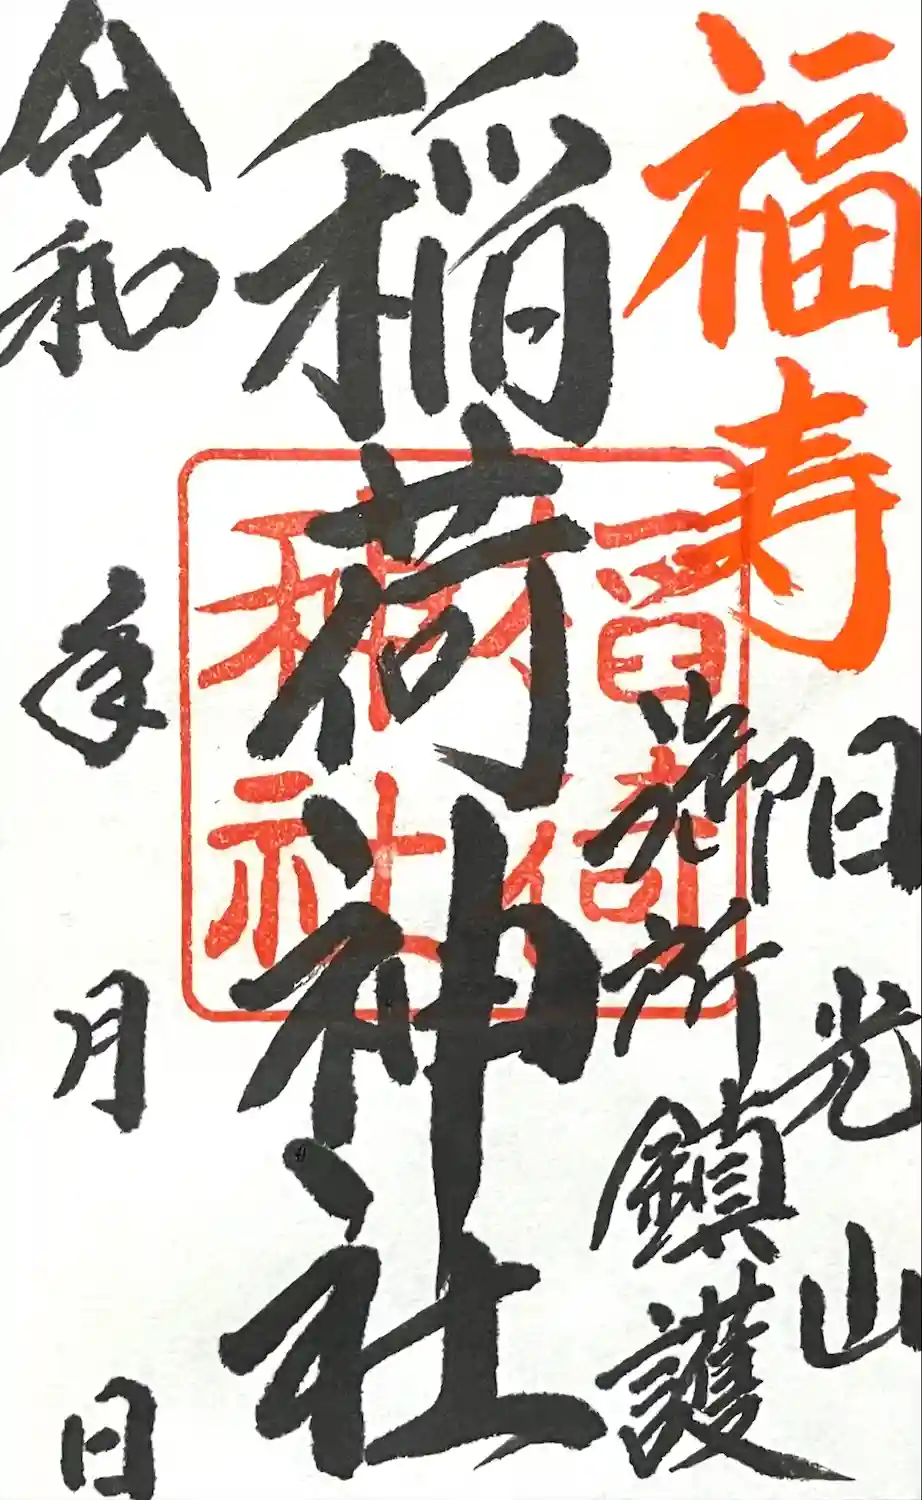 福寿
日光山
御所鎮護
稲荷神社
令和 年 月 日
稲荷
神社